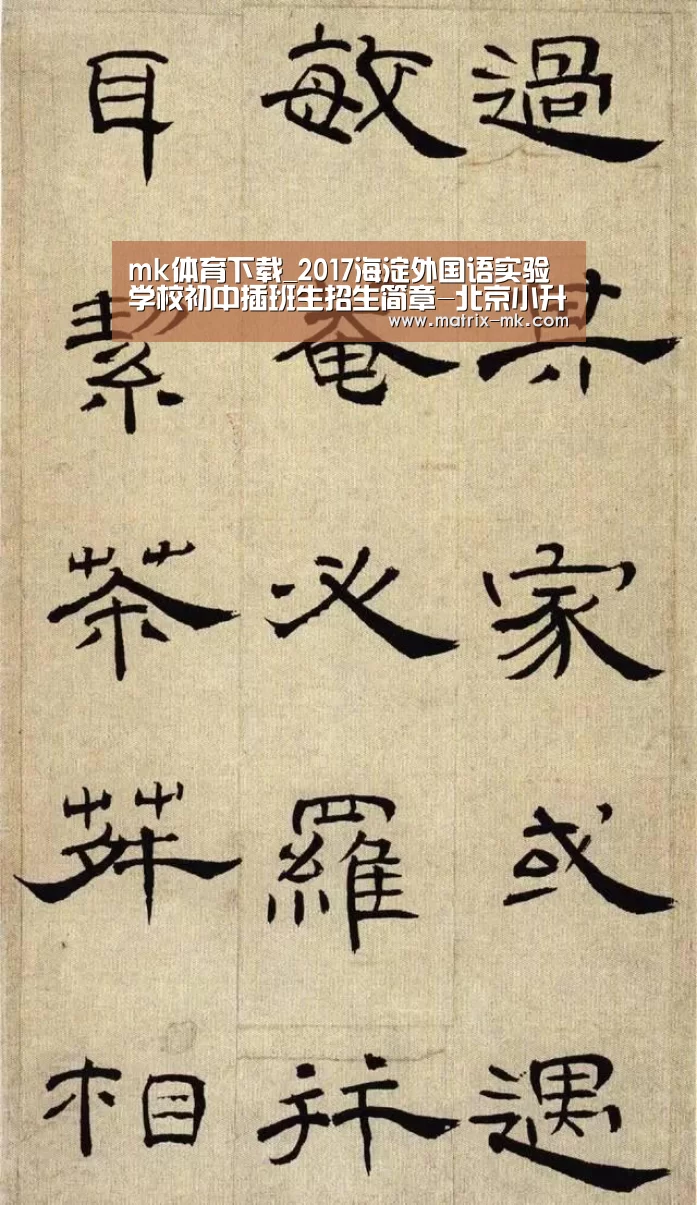 過某家或遇
敏奄必羅并
耳絜茶荈相
mk体育下载_2017海淀外国语实验
学校初中插班生招生简章-北京小升
www.matrix-mk.com